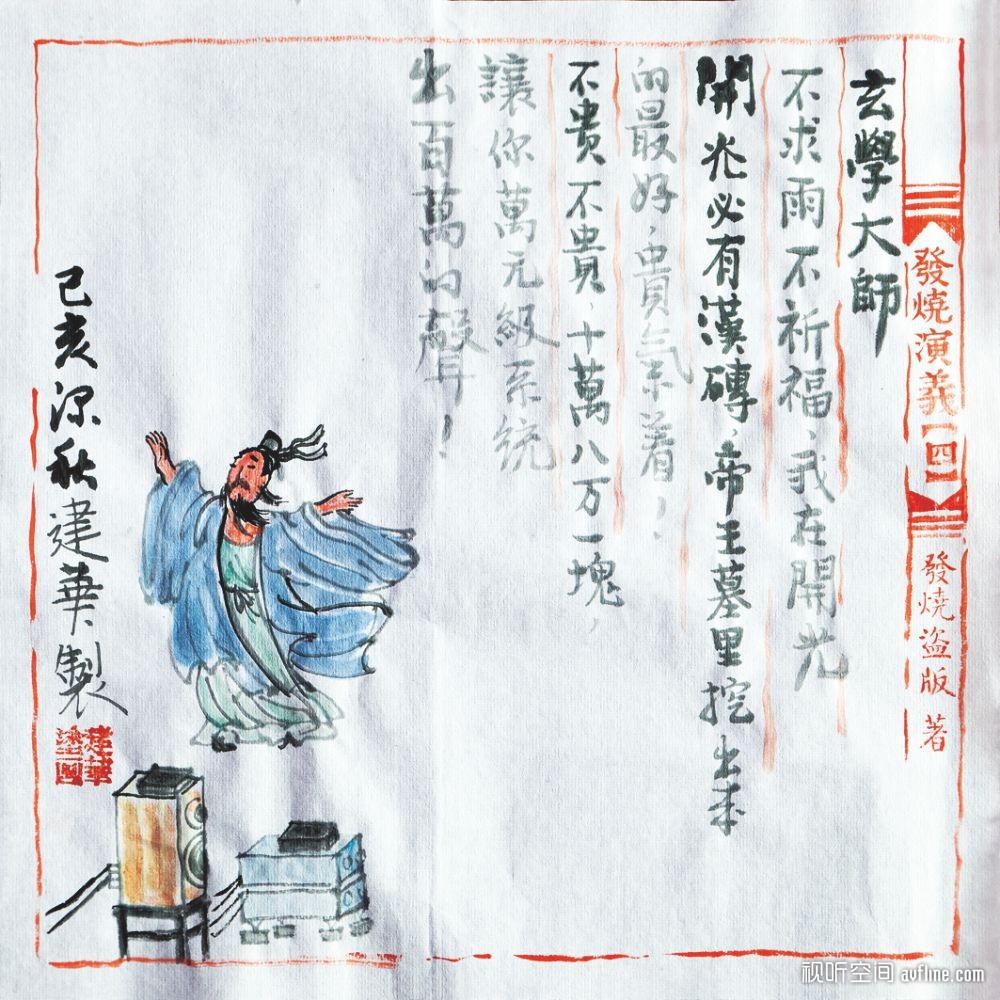 發燒演義【四】
發燒盜版 著
玄學大師
不求雨不祈福,我在開光
開光必有漢磚,帝王墓里挖出來
的最好,貴氣着!
不貴不貴,十萬八万一塊,
讓你萬元級系统
出百萬的聲!
己亥深秋建華製
建華
塗图
视听空间 avfline.com